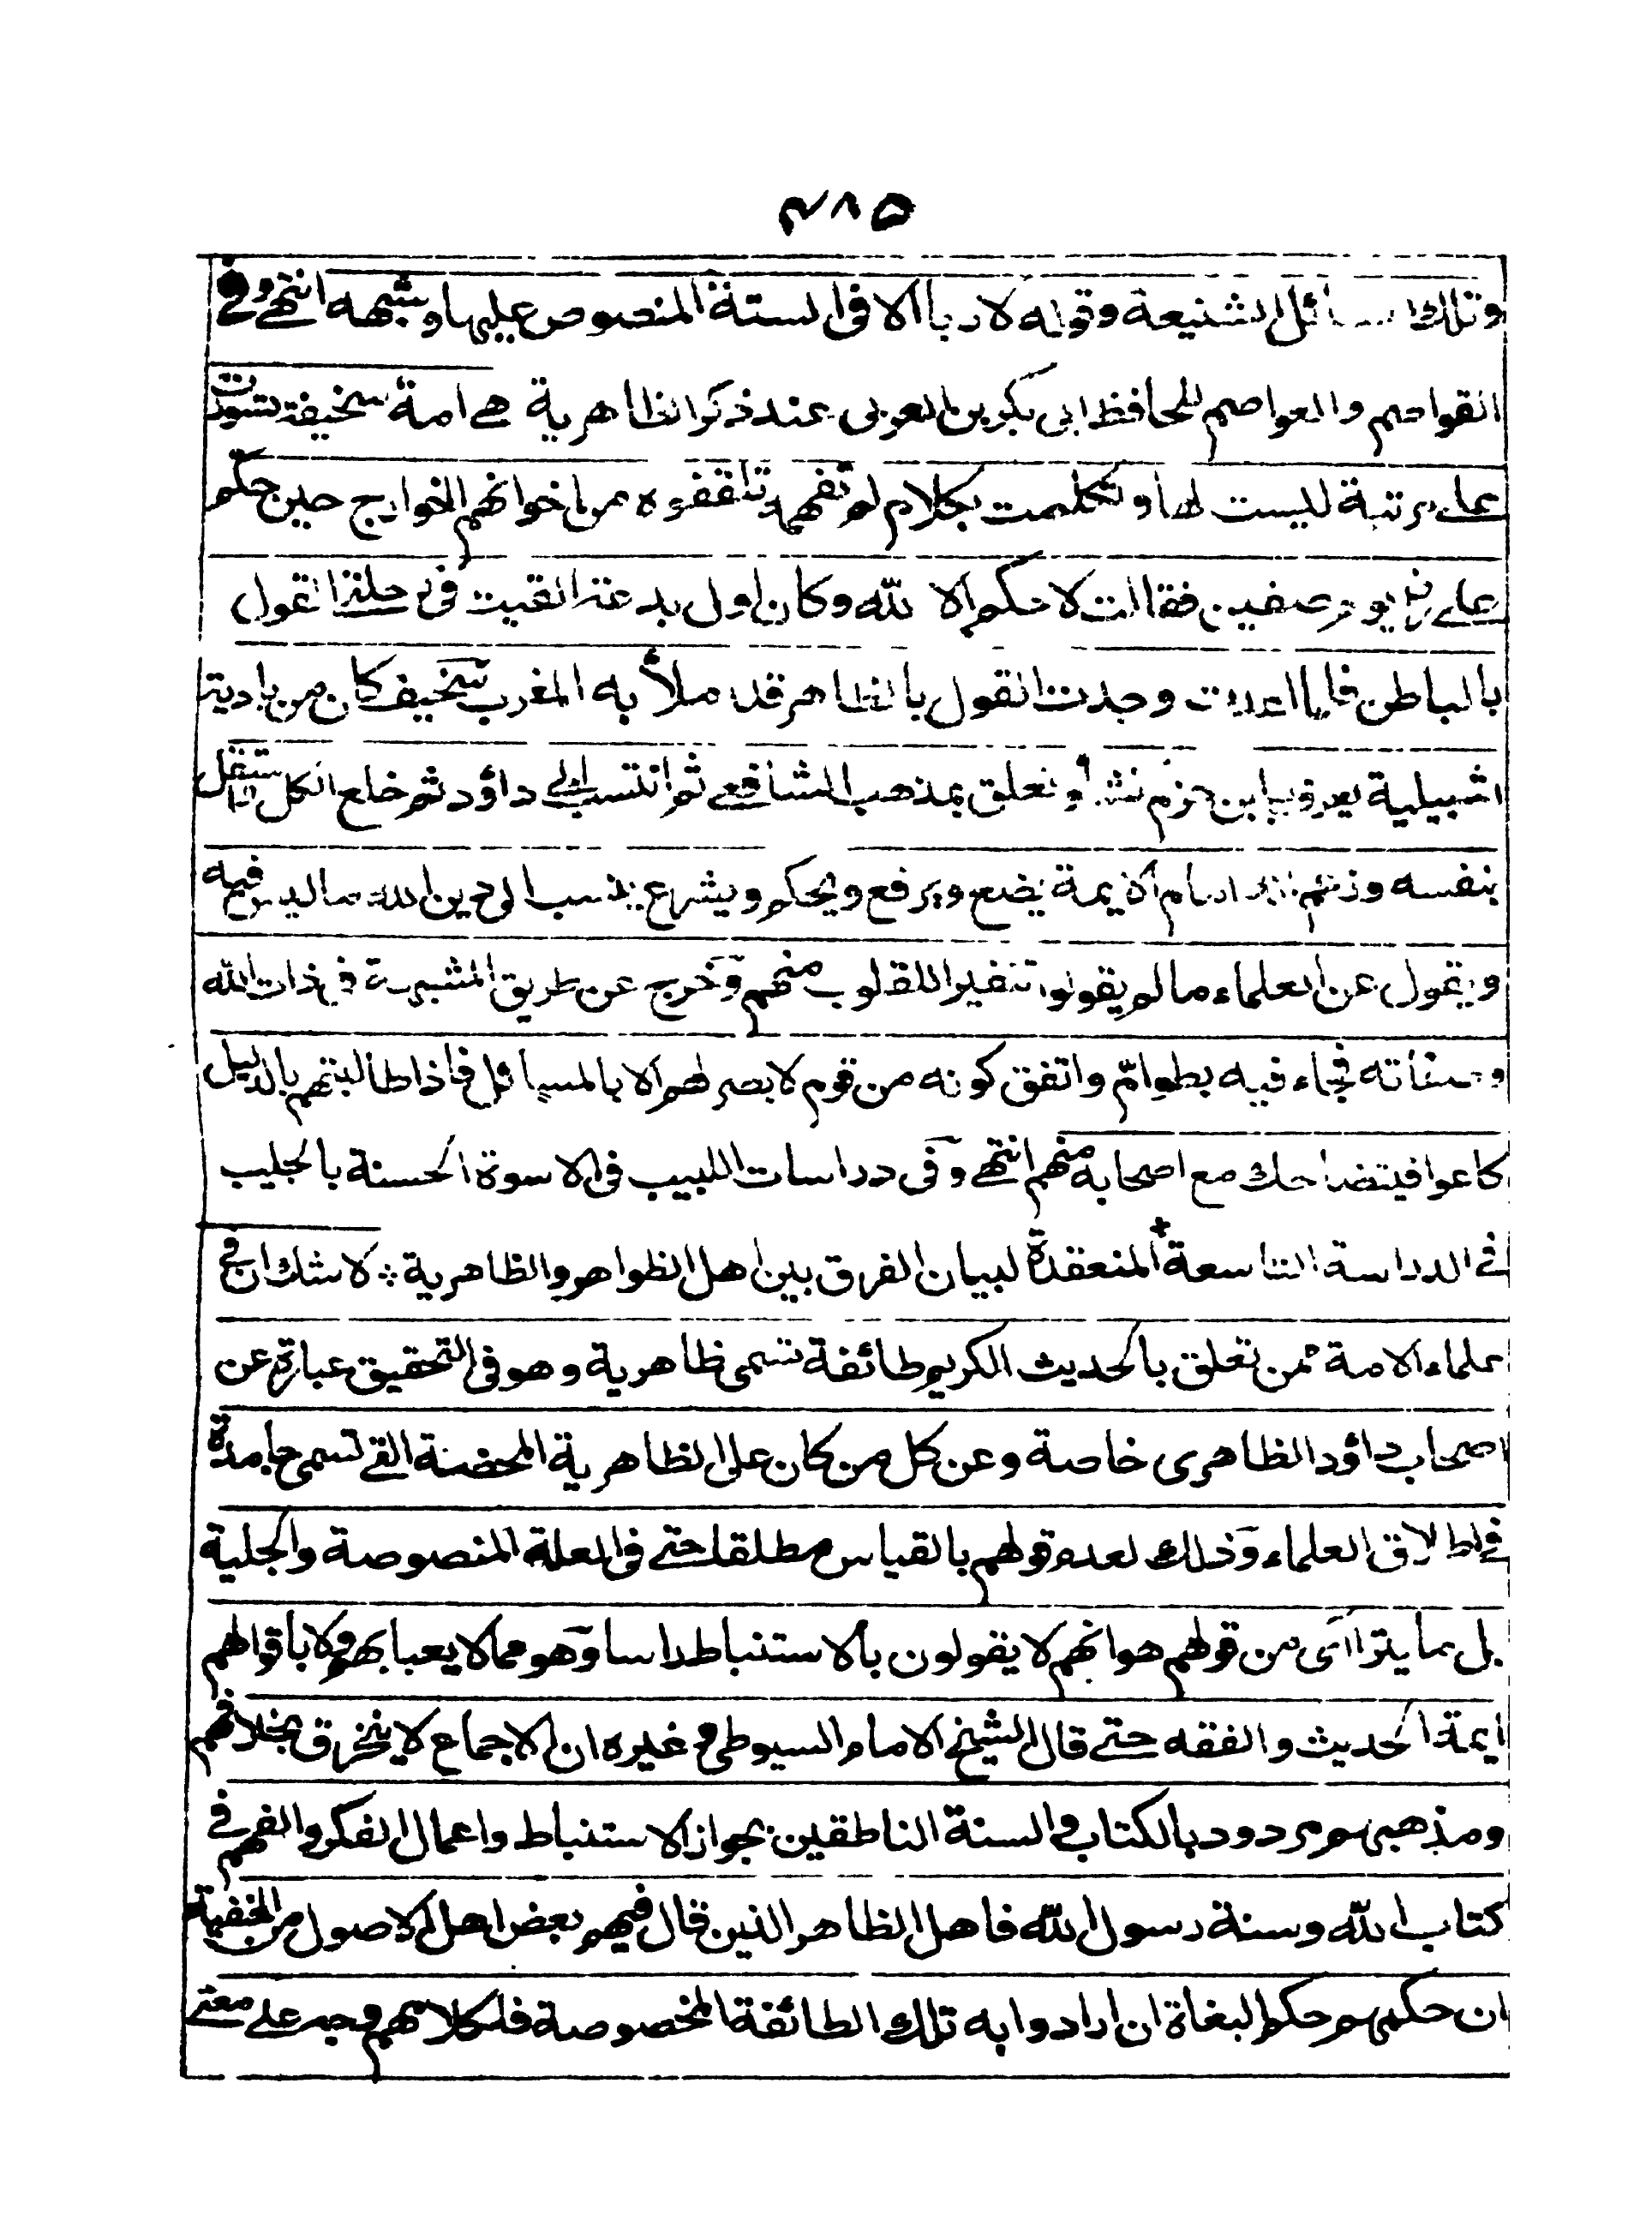 ٣٨٥
وتلك المسائل الشنيعة وقوله لا ربا الا فى الستة المنصوص عليها وشبهه انتهى وفى
القواصم والعواصم للحافظ ابى بكر بن العربى عند ذكر الظاهرية هى امة سخيفة تسورت
على مرتبة ليست لها وتكلمت بكلام لم تفهمه تلقفوه من اخوانهم الخوارج حين حكم
على يوم صفين فقالت لا حكم الا لله وكان اول بدعة القيت فى رحلتى القول
بالباطن فلما عدت وجدت القول بالظاهر قد ملأ به المغرب سخيف كان من بادية
اشبيلية يعرف بابن حزم نشأ وتعلق بمذهب الشافعى ثم انتسب الى داؤد ثم خلع الكل واستقل
بنفسه وزعم انه امام الايمة يضع ويرفع ويحكم ويشرع ينسب الى دين الله ما ليس فيه
ويقول عن العلماء ما لم يقولوا تنفيرا للقلوب منهم وخرج عن طريق المشبهة فى ذات الله
وصفاته فجاء فيه بطوامّ واتفق كونه من قوم لا بصر لهم الا بالمسائل فاذا طالبتهم بالدليل
كاعوا فيتضاحك مع اصحابه منهم انتهى وفى دراسات اللبيب فى الاسوة الحسنة بالجليب
فى الدراسة التاسعة المنعقدة لبيان الفرق بين اهل الظواهر والظاهرية ؞ لا شك ان فى
علماء الامة ممن تعلق بالحديث الكريم طائفة تسمى ظاهرية وهو فى التحقيق عبارة عن
اصحاب داؤد الظاهرى خاصة وعن كل من كان على الظاهرية المحضة التى تسمى جامدة
فى اطلاق العلماء وذلك لعدم قولهم بالقياس مطلقا حتى فى العلة المنصوصة والجلية
بل ما يتراآى من قولهم هو انهم لا يقولون بالاستنباط راسا وهو مما لا يعبا بهم ولا باقوالهم
ايمة الحديث والفقه حتى قال الشيخ الامام السيوطى وغيره ان الاجماع لا ينخرق بخلافهم
ومذهبهم مردود بالكتاب والسنة الناطقين بجواز الاستنباط واعمال الفكر والفهم فى
كتاب الله وسنة رسول الله فاهل الظاهر الذين قال فيهم بعض اهل الاصول من الحنفية
ان حكمهم حكم البغاة ان ارادوا به تلك الطائفة المخصوصة فلكلامهم وجه على معنى